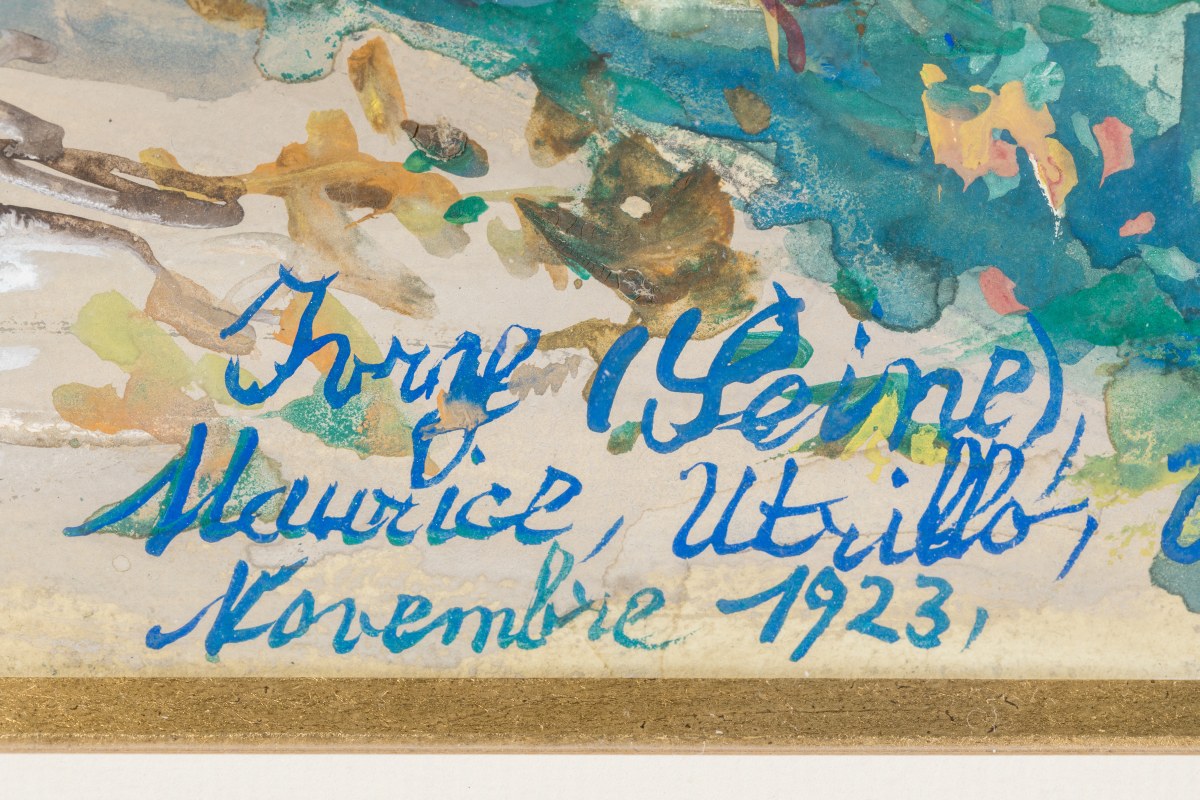 (Seine)
Maurice, Utrillo,
Novembre 1923,